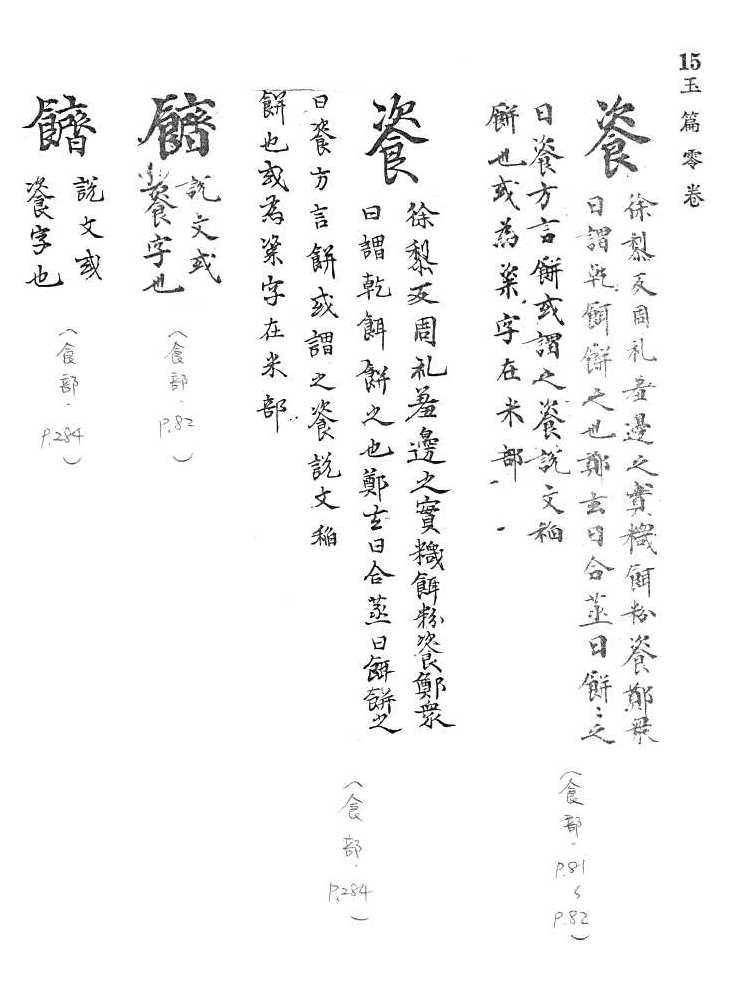 15
玉篇零卷
餈
徐黎反周礼羞邊之實糗餌粉餈鄭衆
曰謂乾餌餅之也鄭玄曰合蒸曰餅〻之
曰餈方言餅或謂之餈說文稲
餅也或為粢字在米部
(食部．P.81〜P.82)
餈
徐黎反周礼羞邊之實糗餌粉餈鄭衆
曰謂乾餌餅之也鄭玄曰合蒸曰餌餅之
曰餈方言餅或謂之餈說文稲
餅也或為粢字在米部
(食部．P.284)
䭣
說文或
餈字也
(食部．P.82)
䭣
說文或
餈字也
(食部．P.284)